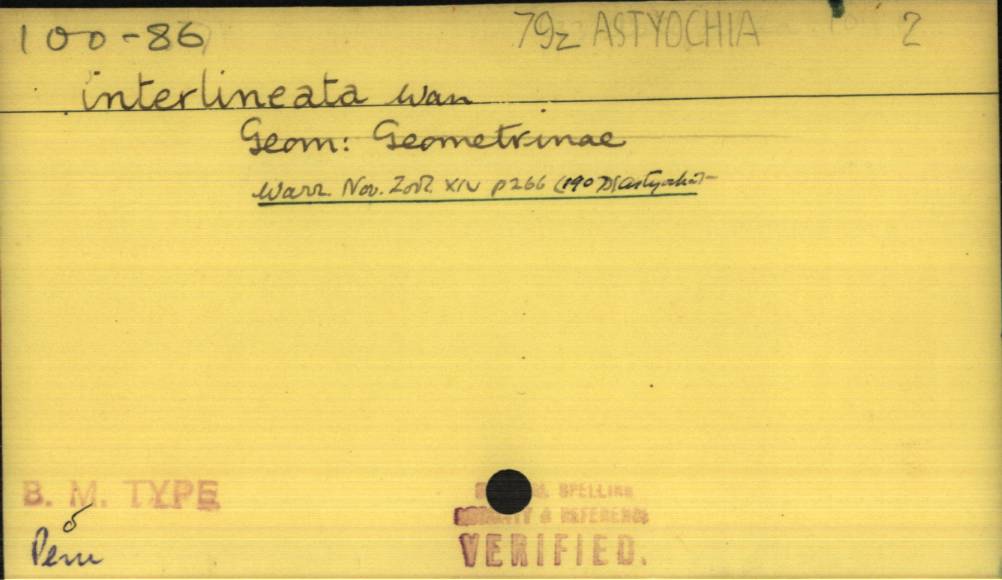 100-86 79z ASTYOCHIA 2
interlineata Warr
Geom: Geometrinae
Warr. Nov. Zool. XIV p266 (1907) (Astyochia)
B. M. TYPE
♂
Peru
SPELLING
& REFERENCE
VERIFIED.